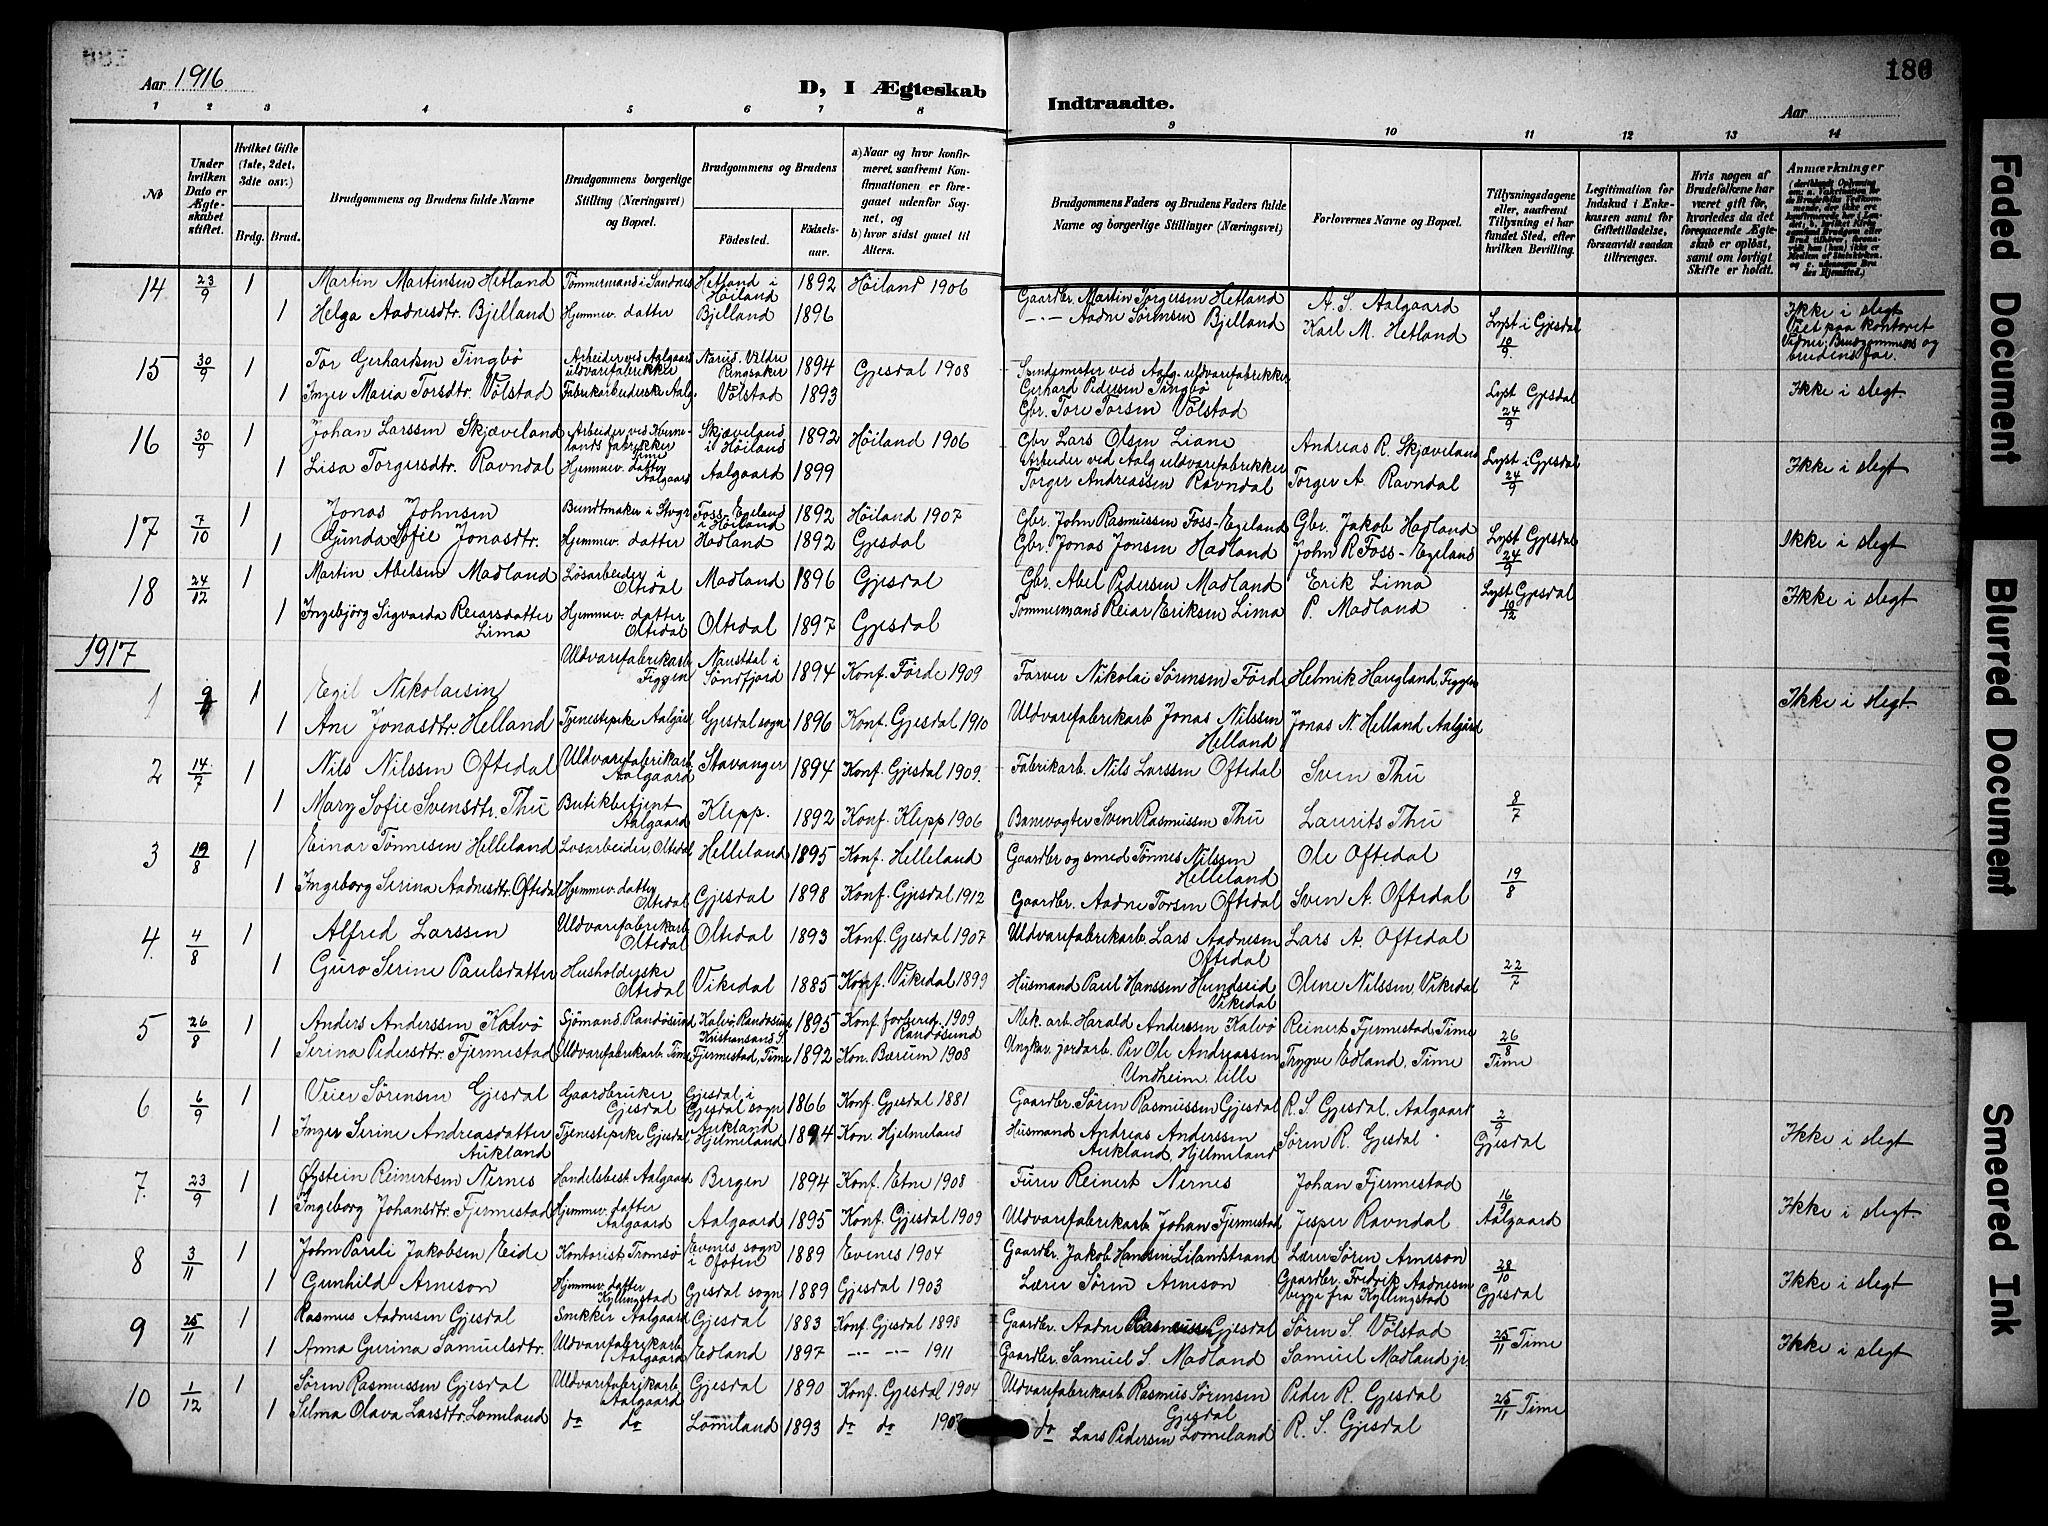 Aar 1916
D, I Ægteskab Indtraadte.
186
Aar
1 2 3 4 5 6 7 8 9 10 11 12 13 14
No
Under hvilken Dato er Ægteskabet stiftet.
Hvilket Gifte (1ste, 2det, 3die osv.)
Brdg. Brud.
Brudgommens og Brudens fulde Navne
Brudgommens borgerlige Stilling (Næringsvei) og Bopæl.
Brudgommens og Brudens
Fødested. Fødselsaar.
a) Naar og hvor konfirmeret, saafremt Konfirmationen er foregaaet udenfor Sognet, og
b) hvor sidst gaaet til Alters.
Brudgommens Faders og Brudens Faders fulde Navne og borgerlige Stillinger (Næringsvei)
Forlovernes Navne og Bopæl.
Tillysningsdagene eller, saafremt Tillysning ei har fundet Sted, efter hvilken Bevilling.
Legitimation for Indskud i Enkekassen samt for Giftetilladelse, forsaavidt saadan tiltrænges.
Hvis nogen af Brudefolkene har været gift før, hvorledes da det foregaaende Ægteskab er opløst, samt om lovligt Skifte er holdt.
Anmærkninger
14 23/9 1 Martin Martinsen Hetland Tømmermand i Sandnes Hetland i Høiland 1892 Høiland 1906 Gaardbr. Martin Torgersen Hetland A. S. Aalgaard
1 Helga Aadnesdtr. Bjelland Hjemmev. datter Bjelland 1896 -"- Aadne Sørensen Bjelland Karl M. Hetland Lyst i Gjesdal 10/9. Ikke i slegt Viet paa kontoret Vidner: Brudgommens og brudens far.
15 30/9 1 Tor Gerhardsen Tingbø Arbeider ved Aalgaards uldvarefabrikker Ringsaker 1894 Gjesdal 1908 Spindemester ved Aalg. uldvarefabrikker Gerhard Pedersen Tingbø
1 Inger Maria Torsdtr. Vølstad Fabrikarbeiderske Aalg. Vølstad 1893 Gbr. Tore Torsen Vølstad Lyst Gjesdal 24/9 Ikke i slegt
16 30/9 1 Johan Larssen Skjæveland Arbeider ved Kvernelands fabrikker Time Skjæveland i Høiland 1892 Høiland 1906 Gbr Lars Olsen Liane Andreas R. Skjæveland
1 Lisa Torgersdtr. Ravndal Hjemmev. datter Aalgaard Aalgaard 1899 Arbeider ved Aalg uldvarefabrikker Torger Andreassen Ravndal Torger A. Ravndal Lyst i Gjesdal 24/9 Ikke i slegt
17 7/10 1 Jonas Johnsen Bundtmaker i Stvgr Foss-Egeland i Høiland 1892 Høiland 1907 Gbr. John Rasmussen Foss-Egeland Gbr. Jakob Hadland
1 Gunda Sofie Jonasdtr. Hjemmev. datter Hadland 1892 Gjesdal Gbr. Jonas Jonsen Hadland John R Foss-Egeland Lyst Gjesdal 24/9 Ikke i slegt
18 24/12 1 Martin Abelsen Madland Løsarbeider i Oltedal Madland 1896 Gjesdal Gbr. Abel Pedersen Madland Erik Lima
1 Ingebjörg Sigvarda Reiarsdatter Lima Hjemmev. datter Oltedal Oltedal 1897 Gjesdal Tømmermand Reiar Eriksen Lima P. Madland Lyst Gjesdal 10/12 Ikke i slegt
1917
1 1 Egil Nikolaisen Uldvarefabrikarb. Figgen Naustdal i Søndfjord 1894 Konf. Førde 1909 Farver Nikolai Sørensen Førd Helmik Haugland, Figgen
1 Ane Jonasdtr. Helland Tjenestepike Aalgård Gjesdal sogn 1896 Konf. Gjesdal 1910 Uldvarefabrikarb Jonas Nilssen Helland Jonas N. Helland Aalgård Ikke i slegt
2 14/7 1 Nils Nilssen Oftedal Uldvarefabrikarb. Aalgaard Stavanger 1894 Konf. Gjesdal 1909. Fabrikarb. Nils Larssen Oftedal Sven Thu
1 Mary Sofie Svensdtr. Thu Butikbetjent Aalgaard Klepp. 1892 Konf. Klepp 1906 Banevogter Sven Rasmussen Thu Laurits Thu 8/7
3 19/8 1 Einar Tønnesen Helleland Løsarbeider, Oltedal Helleland 1895 Konf. Helleland Gaardbr og smed Tønnes Nilssen Helleland Ole Oftedal
1 Ingeborg Serina Aadnesdtr. Oftedal Hjemmev. datter Oltedal Gjesdal 1898 Konf. Gjesdal 1912 Gaardbr. Aadne Torsen Oftedal Sven A. Oftedal 19/8
4. 4/8 1 Alfred Larssen Uldvarefabrikarb Oltedal Oltedal 1893 Konf. Gjesdal 1907 Uldvarefabrikarb. Lars Aadnesen Oftedal Lars A. Oftedal
1 Guro Serine Paulsdatter Husholderske Oltedal Vikedal 1885 Konf. Vikedal 1899 Husmand Paul Hanssen Hundseid Vikedal Olene Nilssen, Vikedal 22/7
5 26/8 1 Anders Anderssen Kalvø Sjömand, Randøsund Kalvø, Randøsund Kristiansand S. 1895 Konf. forbered. 1909 Randøsund Mek. arb. Harald Anderssen Kalvø Reinert Fjermestad, Time
1 Serina Pedersdtr. Fjermestad Uldvarefabrikarb Time Fjermestad, Time 1892 Kon. Bærum 1908 Ungkar, jordarb. Per Ole Andreassen Undheim, lille Trygve Edland, Time 26/8 Time
6 6/9 1 Veier Sørensen Gjesdal Gaardbruker Gjesdal Gjesdal i Gjesdal sogn 1866 Konf. Gjesdal 1881 Gaardbr. Søren Rasmussen Gjesdal R. S. Gjesdal, Aalgaard
1 Inger Serine Andreasdatter Aukland Tjenestepike Gjesdal Aukland Hjelmeland 1894 Kon. Hjelmeland Husmand Andreas Anderssen Aukland, Hjelmeland Søren R. Gjesdal 2/9 Gjesdal Ikke i slegt
7. 23/9 1 Øystein Reinertsen Nernes Handelsbest. Aalgaard Bergen 1894 Konf. Etne 1908 Fürer Reinert Nernes Johan Fjermestad
1 Ingeborg Johansdtr. Fjermestad Hjemmev. datter Aalgaard Aalgaard 1895 Konf. Gjesdal 1909 Uldvarefabrikarb Johan Fjermestad Jesper Ravndal 16/9 Aalgaard Ikke i slegt.
8 3/11 1 John Pareli Jakobsen Eide Kontorist Tromsø Evenes sogn i Ofoten 1889 Evenes 1904 Gaardbr. Jakob Hansen Lilandstrand Lærer Søren Arneson
1 Gunhild Arneson Hjemmev. datter Kyllingstad Gjesdal sogn 1889 Gjesdal 1903 Lærer Sören Arneson Gaardbr. Fredrik Aadnesen begge fra Kyllingstad 28/10 Gjesdal Ikke i slegt
9 25/11 1 Rasmus Aadnesen Gjesdal Snekker Aalgaard Gjesdal 1883 Konf. Gjesdal 1898 Gaardbr. Aadne Rasmussen Gjesdal Søren S. Vølstad
1 Anna Gurina Samuelsdtr. Uldvarefabrikarb. Aalgaard Edland 1897 -"- -"- 1911 Gaardbr. Samuel S. Madland Samuel Madland jr. 25/11 Time Ikke i slegt
10 1/12 1 Søren Rasmussen Gjesdal Uldvarefabrikarb. Aalgaard Gjesdal 1890 Konf. Gjesdal 1904 Uldvarefabrikarb Rasmus Sørensen Gjesdal Peder R. Gjesdal
1 Selma Olava Larsdtr. Lomeland do do Lomeland 1893 do do do Lars Pedersen Lomeland R. S. Gjesdal 25/11 Time
Faded Document
Blurred Document
Smeared Ink